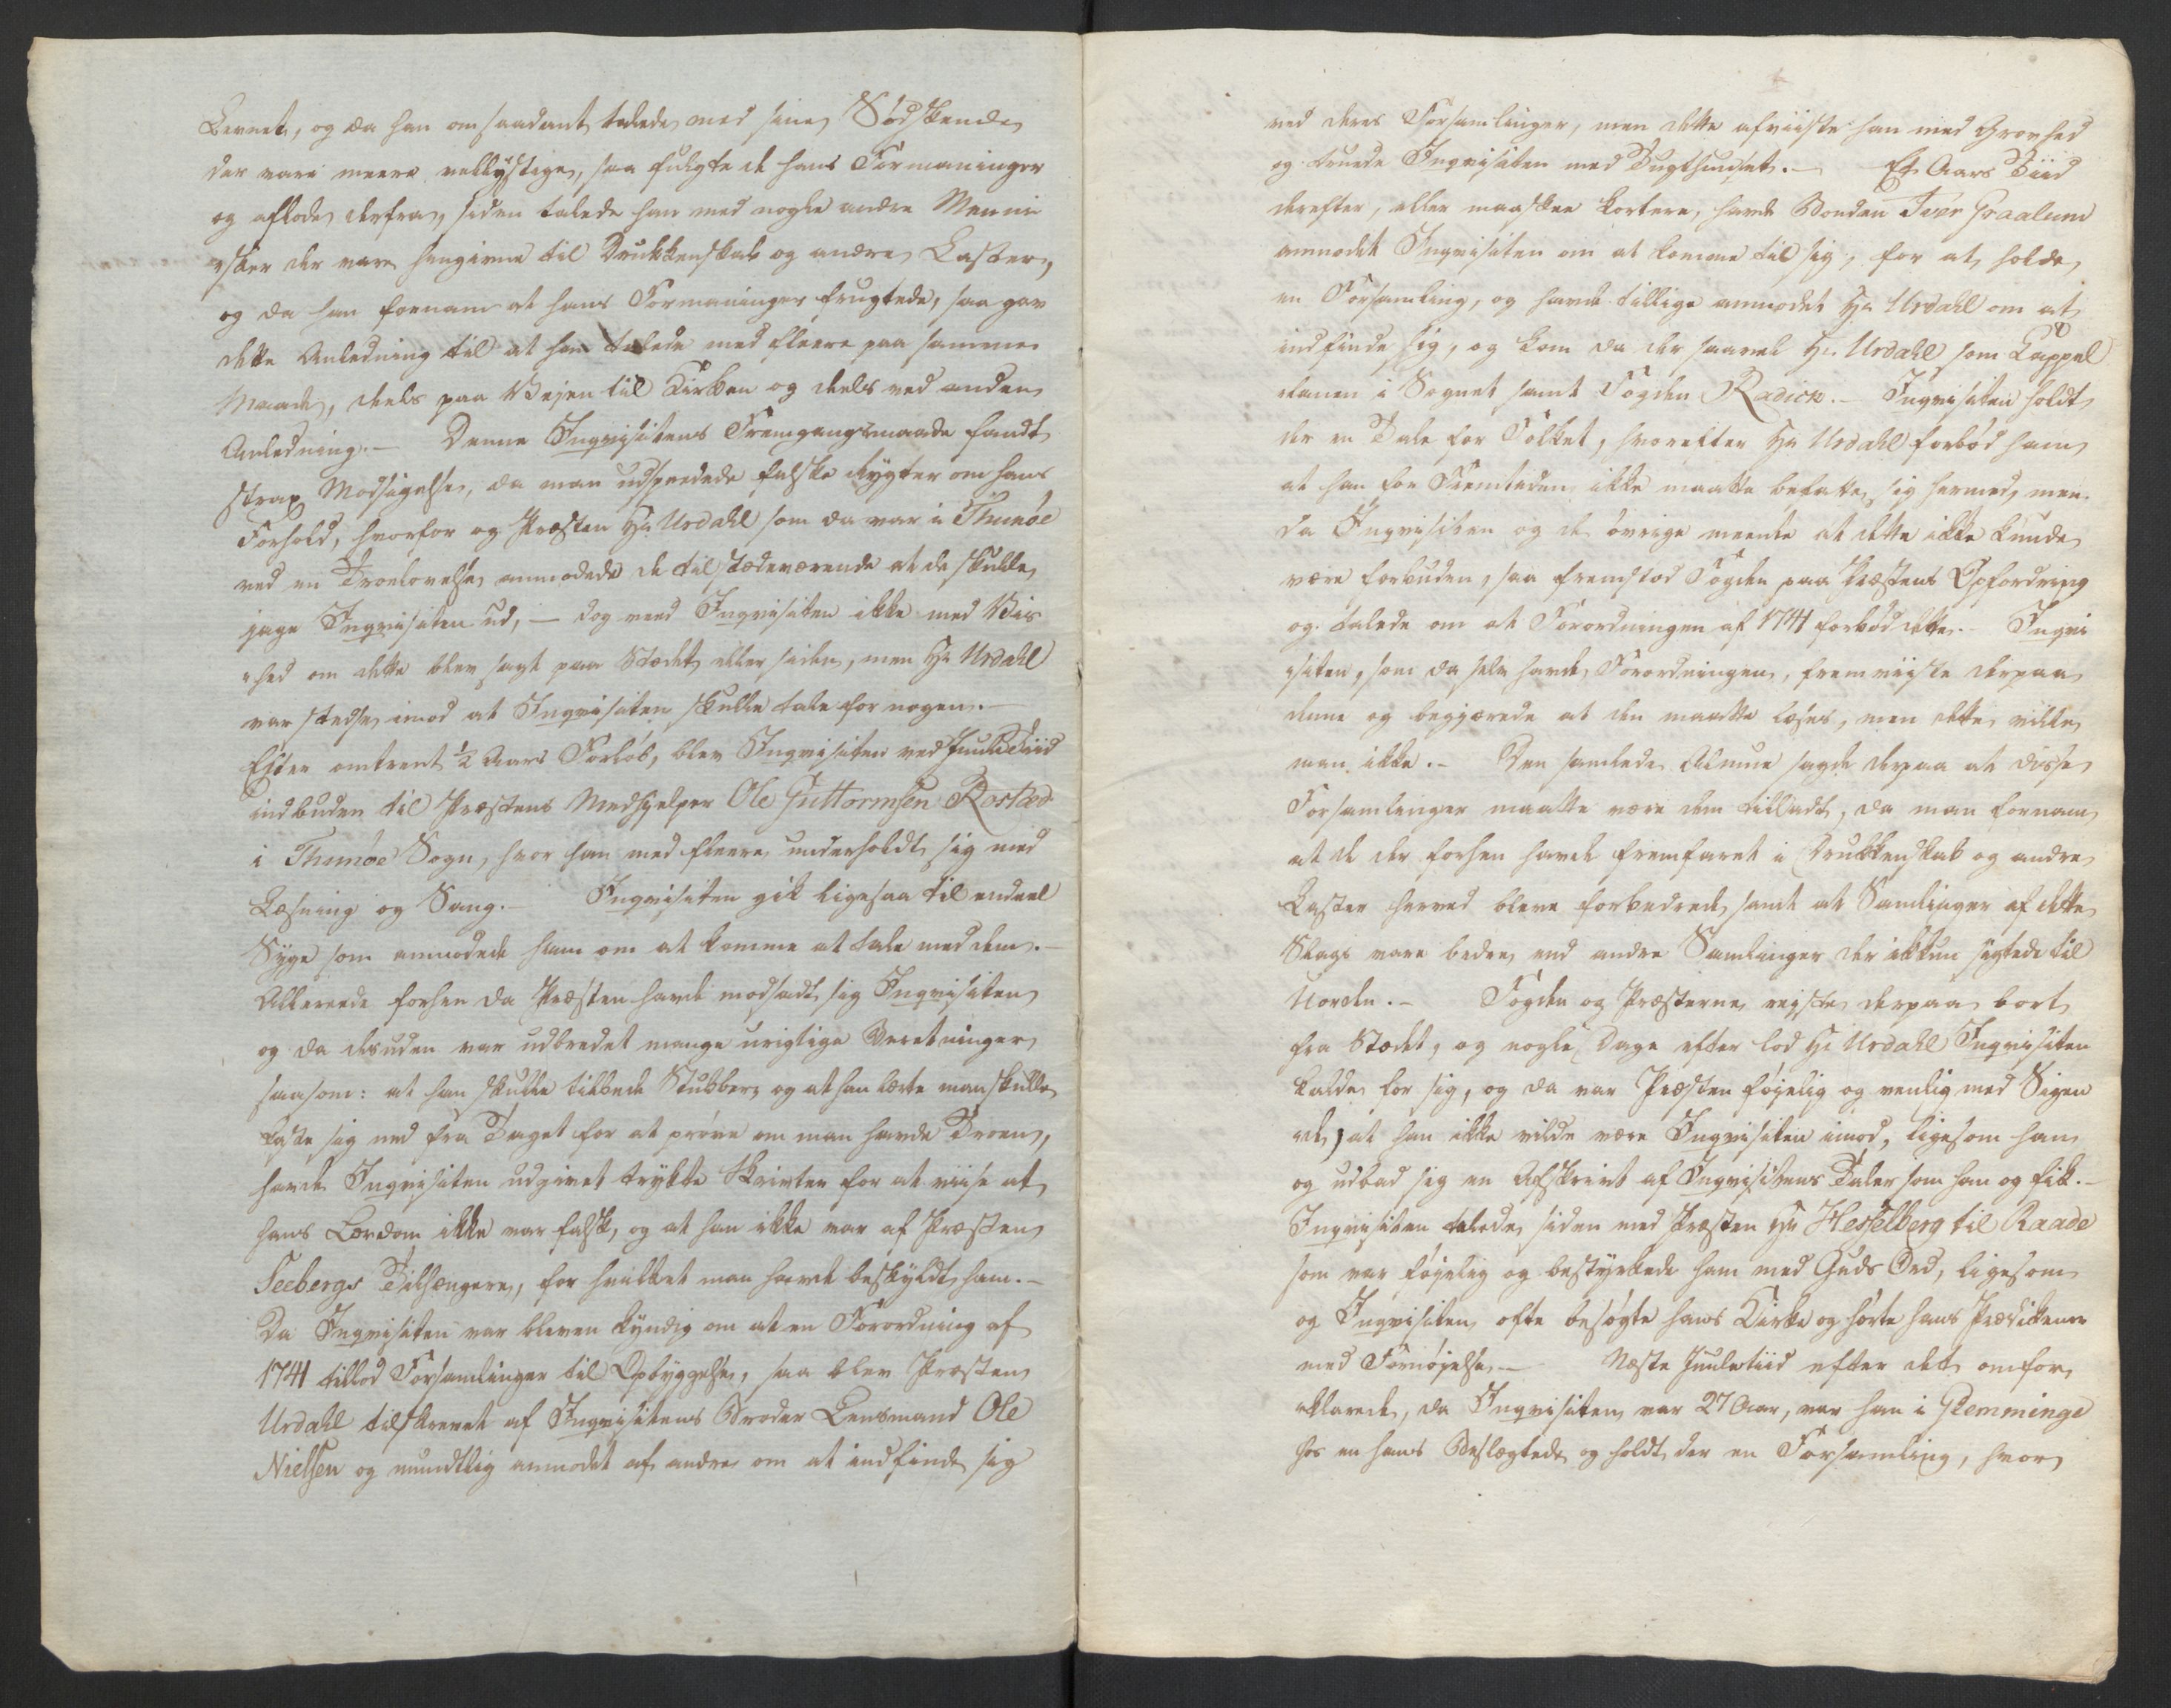 Levnet, og da han om saadant talede med sine Sødskende
der vare meere vellystige, saa fulgte de hans Formaninger
og aflode derfra, siden talede han med nogle andre Menni
sker der vare hengivne til Drukkenskab og andre Laster,
og da han fornam at hans Formaninger frugtede, saa gav
dette Anledning til at han talede med fleere paa samme
Maade, deels paa Vejen til Kirken og deels ved anden
Anledning. — Denne Inqvisitens Fremgangsmaade fandt
strax Modsigelse, da man udspredede falske Rygter om hans
Forhold, hvorfor og Præsten Hr. Urdahl som da var i Thunøe
ved en Trolovelse anmodede de tilstædeværende at de skulle
jage Inqvisiten ud, — dog veed Inqvisiten ikke med Vis
hed om dette blev sagt paa Stædet eller siden, men Hr Urdahl
var stedse imod at Inqvisiten skulle tale for nogen. —
Efter omtrent ½ Aars Forløb, blev Inqvisiten ved Juule Tiid
indbuden til Præstens Medhjelper Ole Guttormsen Rostad
i Thunøe Sogn, hvor han med fleere underholdt sig med
Læsning og Sang. — Inqvisiten gik ligesaa til endeel
Syge som anmodede ham om at komme at tale med dem. —
Allereede forhen da Præsten havde modsadt sig Inqvisiten
og da desuden var udbredet mange urigtige Beretninger
saasom: at han skulle tilbede Stubber, og at han lærte man skulle
kaste sig ned fra Taget for at prøve om man havde Troen,
havde Inqvisiten udgivet trykte Skrivter for at viise at
hans Lærdom ikke var falsk, og at han ikke var af Præsten
Seebergs Tilhængere, for hvilket man havde beskyldt ham. —
Da Inqvisiten var bleven kyndig om at en Forordning af
1741 tillod Forsamlinger til Opbyggelse, saa blev Præsten
Urdahl tilskrevet af Inqvisitens Broder Lensmand Ole
Nielsen og mundtlig anmodet af andre om at indfinde sig
ved deres Forsamlinger, men dette afviiste han med Grovhed
og truede Inqvisiten med Tugthuuset. — Et Aars Tiid
derefter, eller maaskee kortere, havde Bonden Iver Graalum
anmodet Inqvisiten om at komme til sig, for at holde
en Forsamling, og havde tillige anmodet Hr Urdahl om at
indfinde sig, og kom da der saavel Hr. Urdahl som Cappel
lanen i Sognet samt Fogden Radich. — Inqvisiten holdt
der en Tale for Folket, hvorefter Hr Urdahl forbød ham
at han for Fremtiden ikke maatte befatte sig hermed, men
da Inqvisiten og de øvrige meente at dette ikke kunde
være forbuden, saa fremstod Fogden paa Præstens Opfordring
og talede om at Forordningen af 1741 forbød dette. — Inqvi
siten, som da selv havde Forordningen, fremviiste derpaa
denne og begjærede at den maatte læses, men dette vilde
man ikke. — Den samlede Almue sagde derpaa at disse
Forsamlinger maatte være dem tilladt, da man fornam
at de der forhen havde fremfaret i Drukkenskab og andre
Laster herved bleve forbedrede samt at Samlinger af dette
Slags vare bedre end andre Samlinger der ikkun sigtede til
Uorden. — Fogden og Præsterne rejste derpaa bort
fra Stædet, og nogle Dage efter lod Hr Urdahl Inqvisiten
kalde for sig, og da var Præsten føjelig og venlig med Sigen
de, at han ikke vilde være Inqvisiten imod, ligesom han
og udbad sig en Afskrivt af Inqvisitens Taler som han og fik. —
Inqvisiten talede siden med Præsten Hr Hesselberg til Raade
som var føjelig og bestyrkede ham med Guds Ord, ligesom
og Inqvisiten ofte besøgte hans Kirke og hørte hans Prædikener
med Fornøjelse. — Næste Juuletiid efter det omfor
klarede, da Inqvisiten var 27 Aar, var han i Glemminge
hos en hans Beslægtede og holdt der en Forsamling, hvor